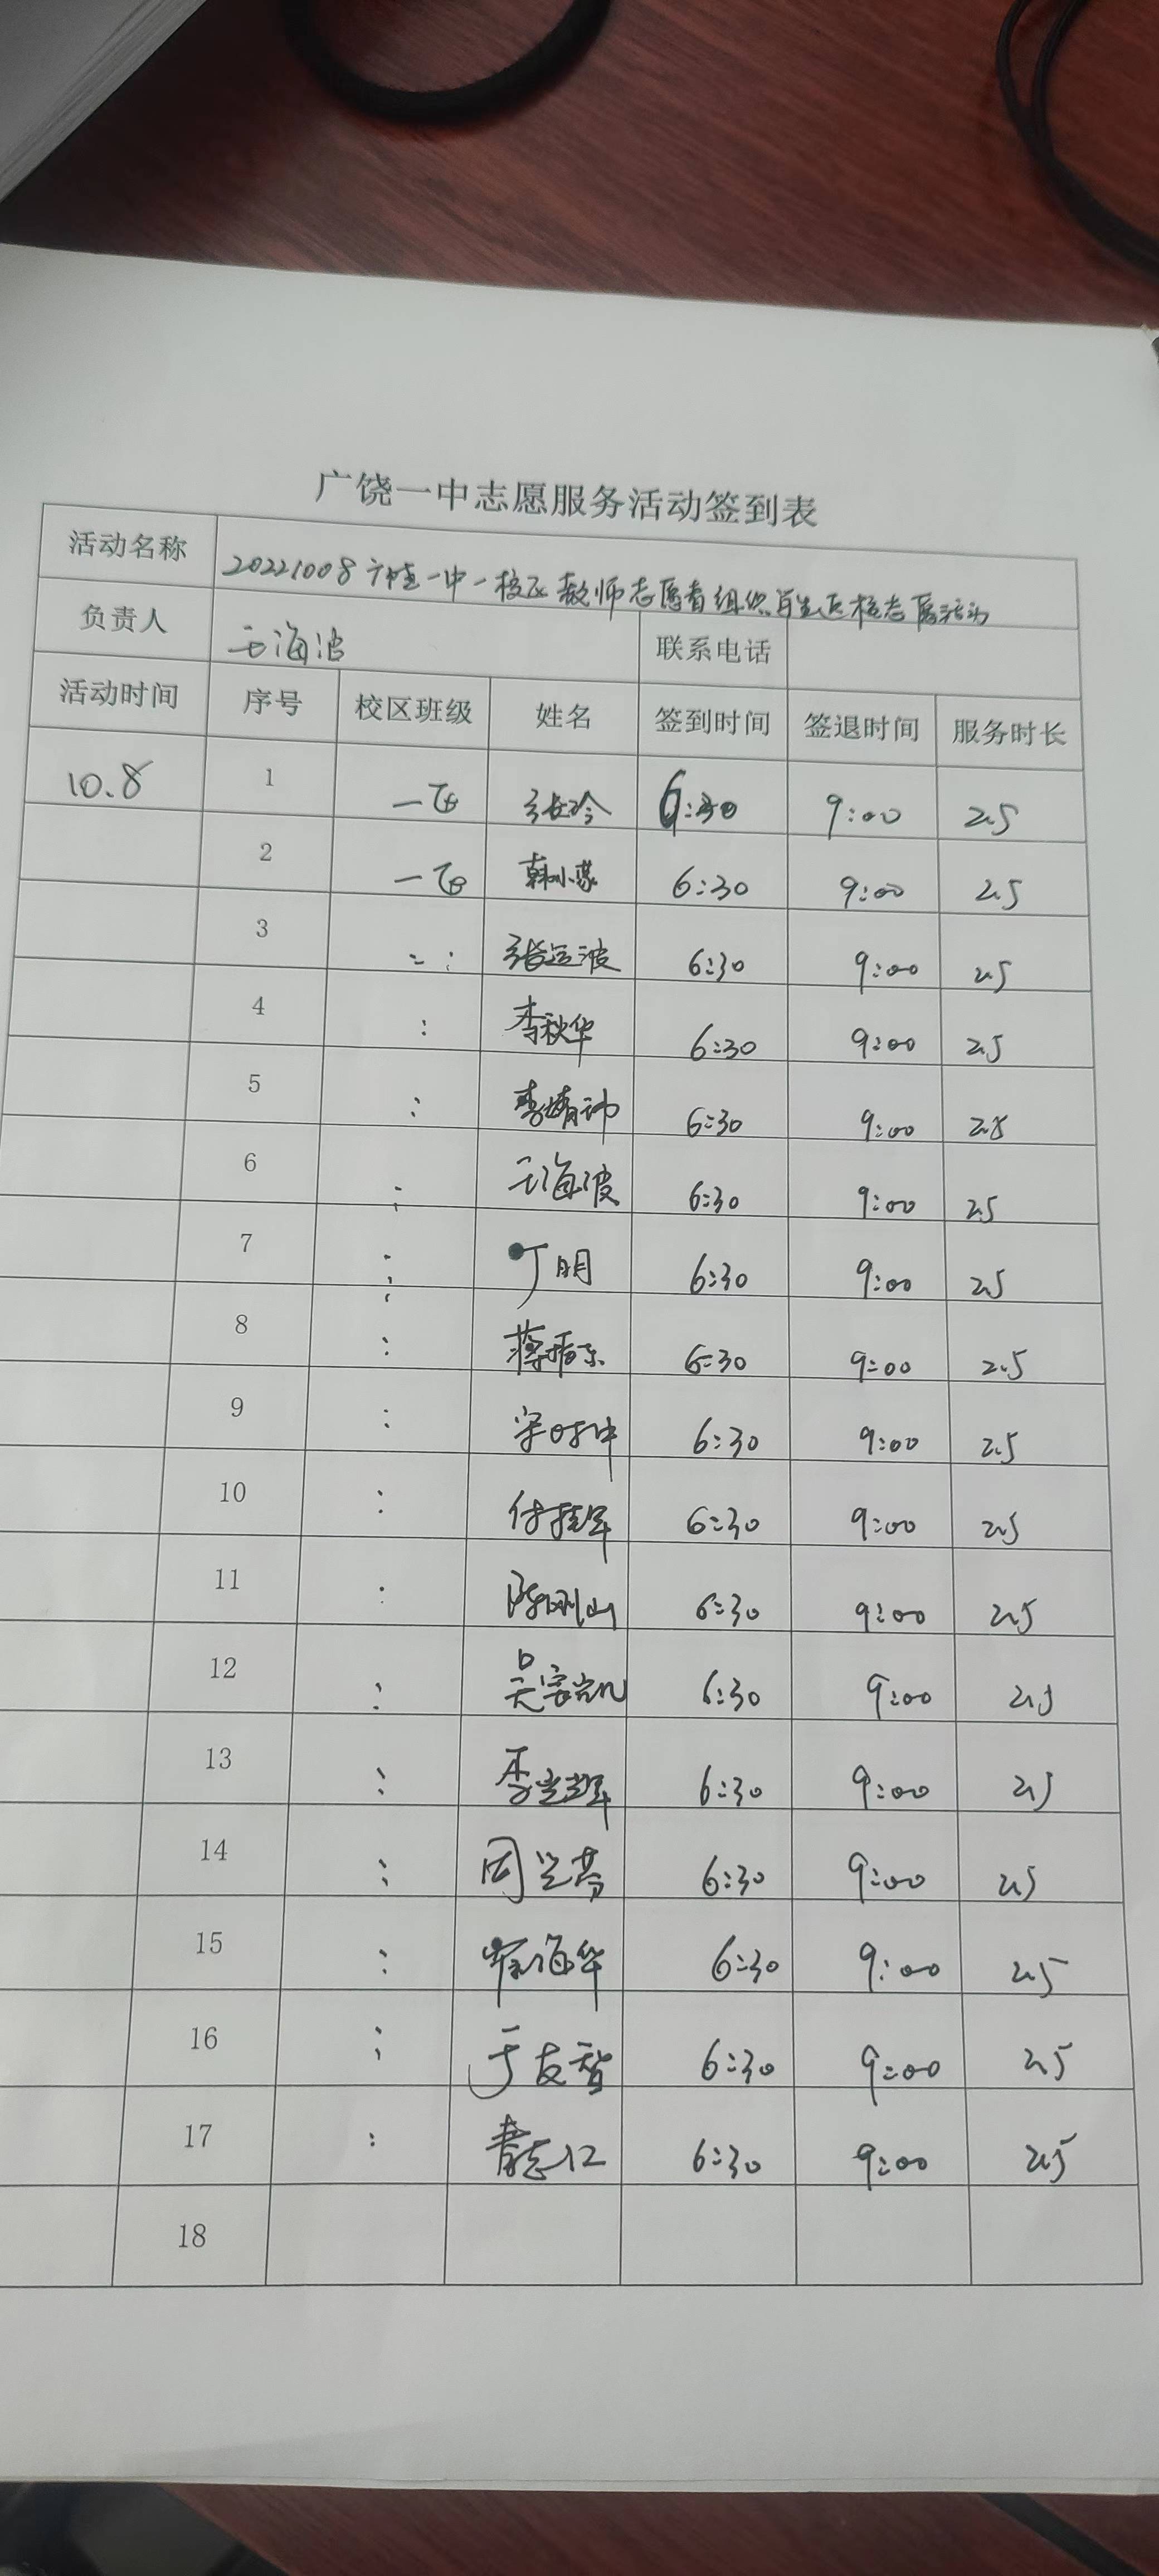 广饶一中志愿服务活动签到表
活动名称 20221008广饶一中一校区教师志愿者组织学生返校志愿活动
负责人 王海波 联系电话
活动时间 序号 校区班级 姓名 签到时间 签退时间 服务时长
10.8 1 一 张玲 6:30 9:00 2.5
2 一 韩小燕 6:30 9:00 2.5
3 张运波 6:30 9:00 2.5
4 李秋华 6:30 9:00 2.5
5 李婧 6:30 9:00 2.5
6 王海波 6:30 9:00 2.5
7 丁明 6:30 9:00 2.5
8 蒋振东 6:30 9:00 2.5
9 宋时中 6:30 9:00 2.5
10 付军 6:30 9:00 2.5
11 陈刚山 6:30 9:00 2.5
12 吴家凯 6:30 9:00 2.5
13 李 6:30 9:00 2.5
14 周兰芬 6:30 9:00 2.5
15 海华 6:30 9:00 2.5
16 于友智 6:30 9:00 2.5
17 志江 6:30 9:00 2.5
18